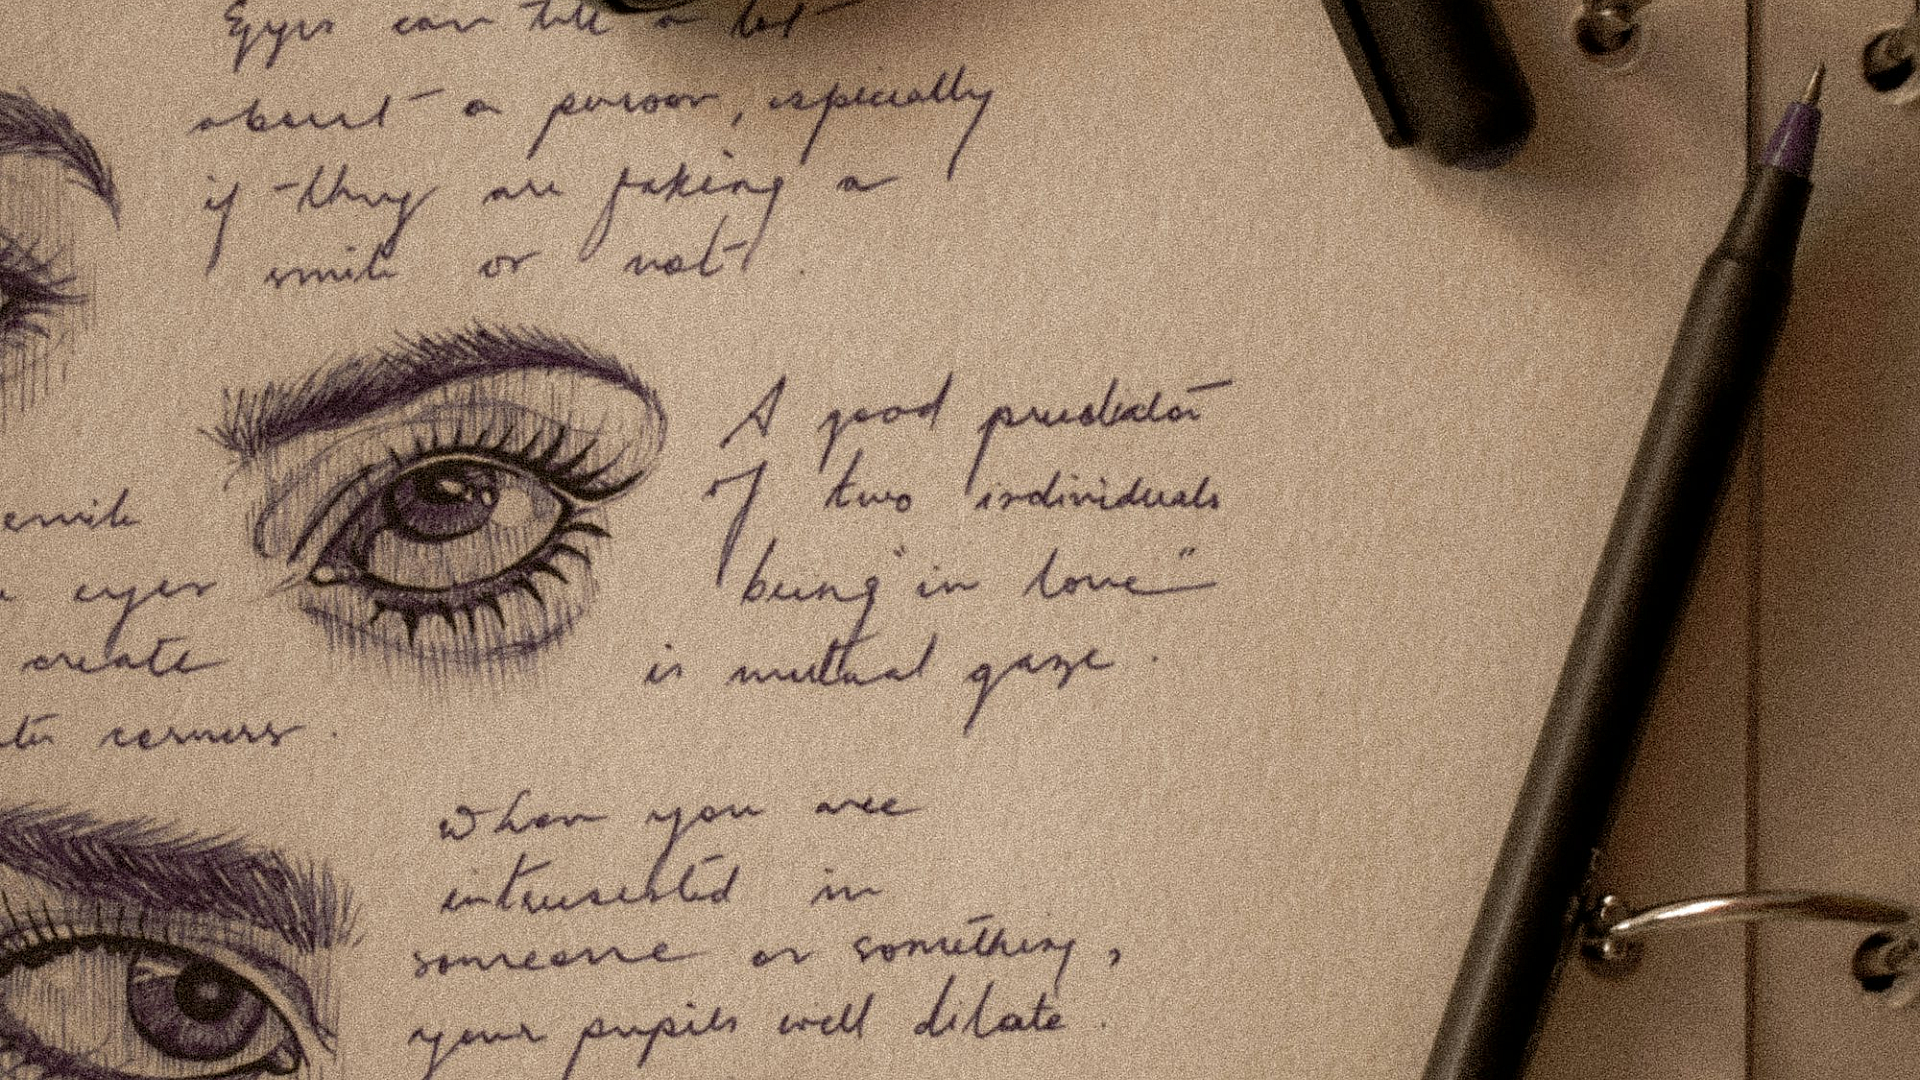 Eyes can tell a lot
about a person, especially
if they are faking a
smile or not.
A good predictor
of two individuals
being "in love"
is mutual gaze.
smile
eyes
create
corners.
When you are
interested in
someone or something,
your pupils will dilate.